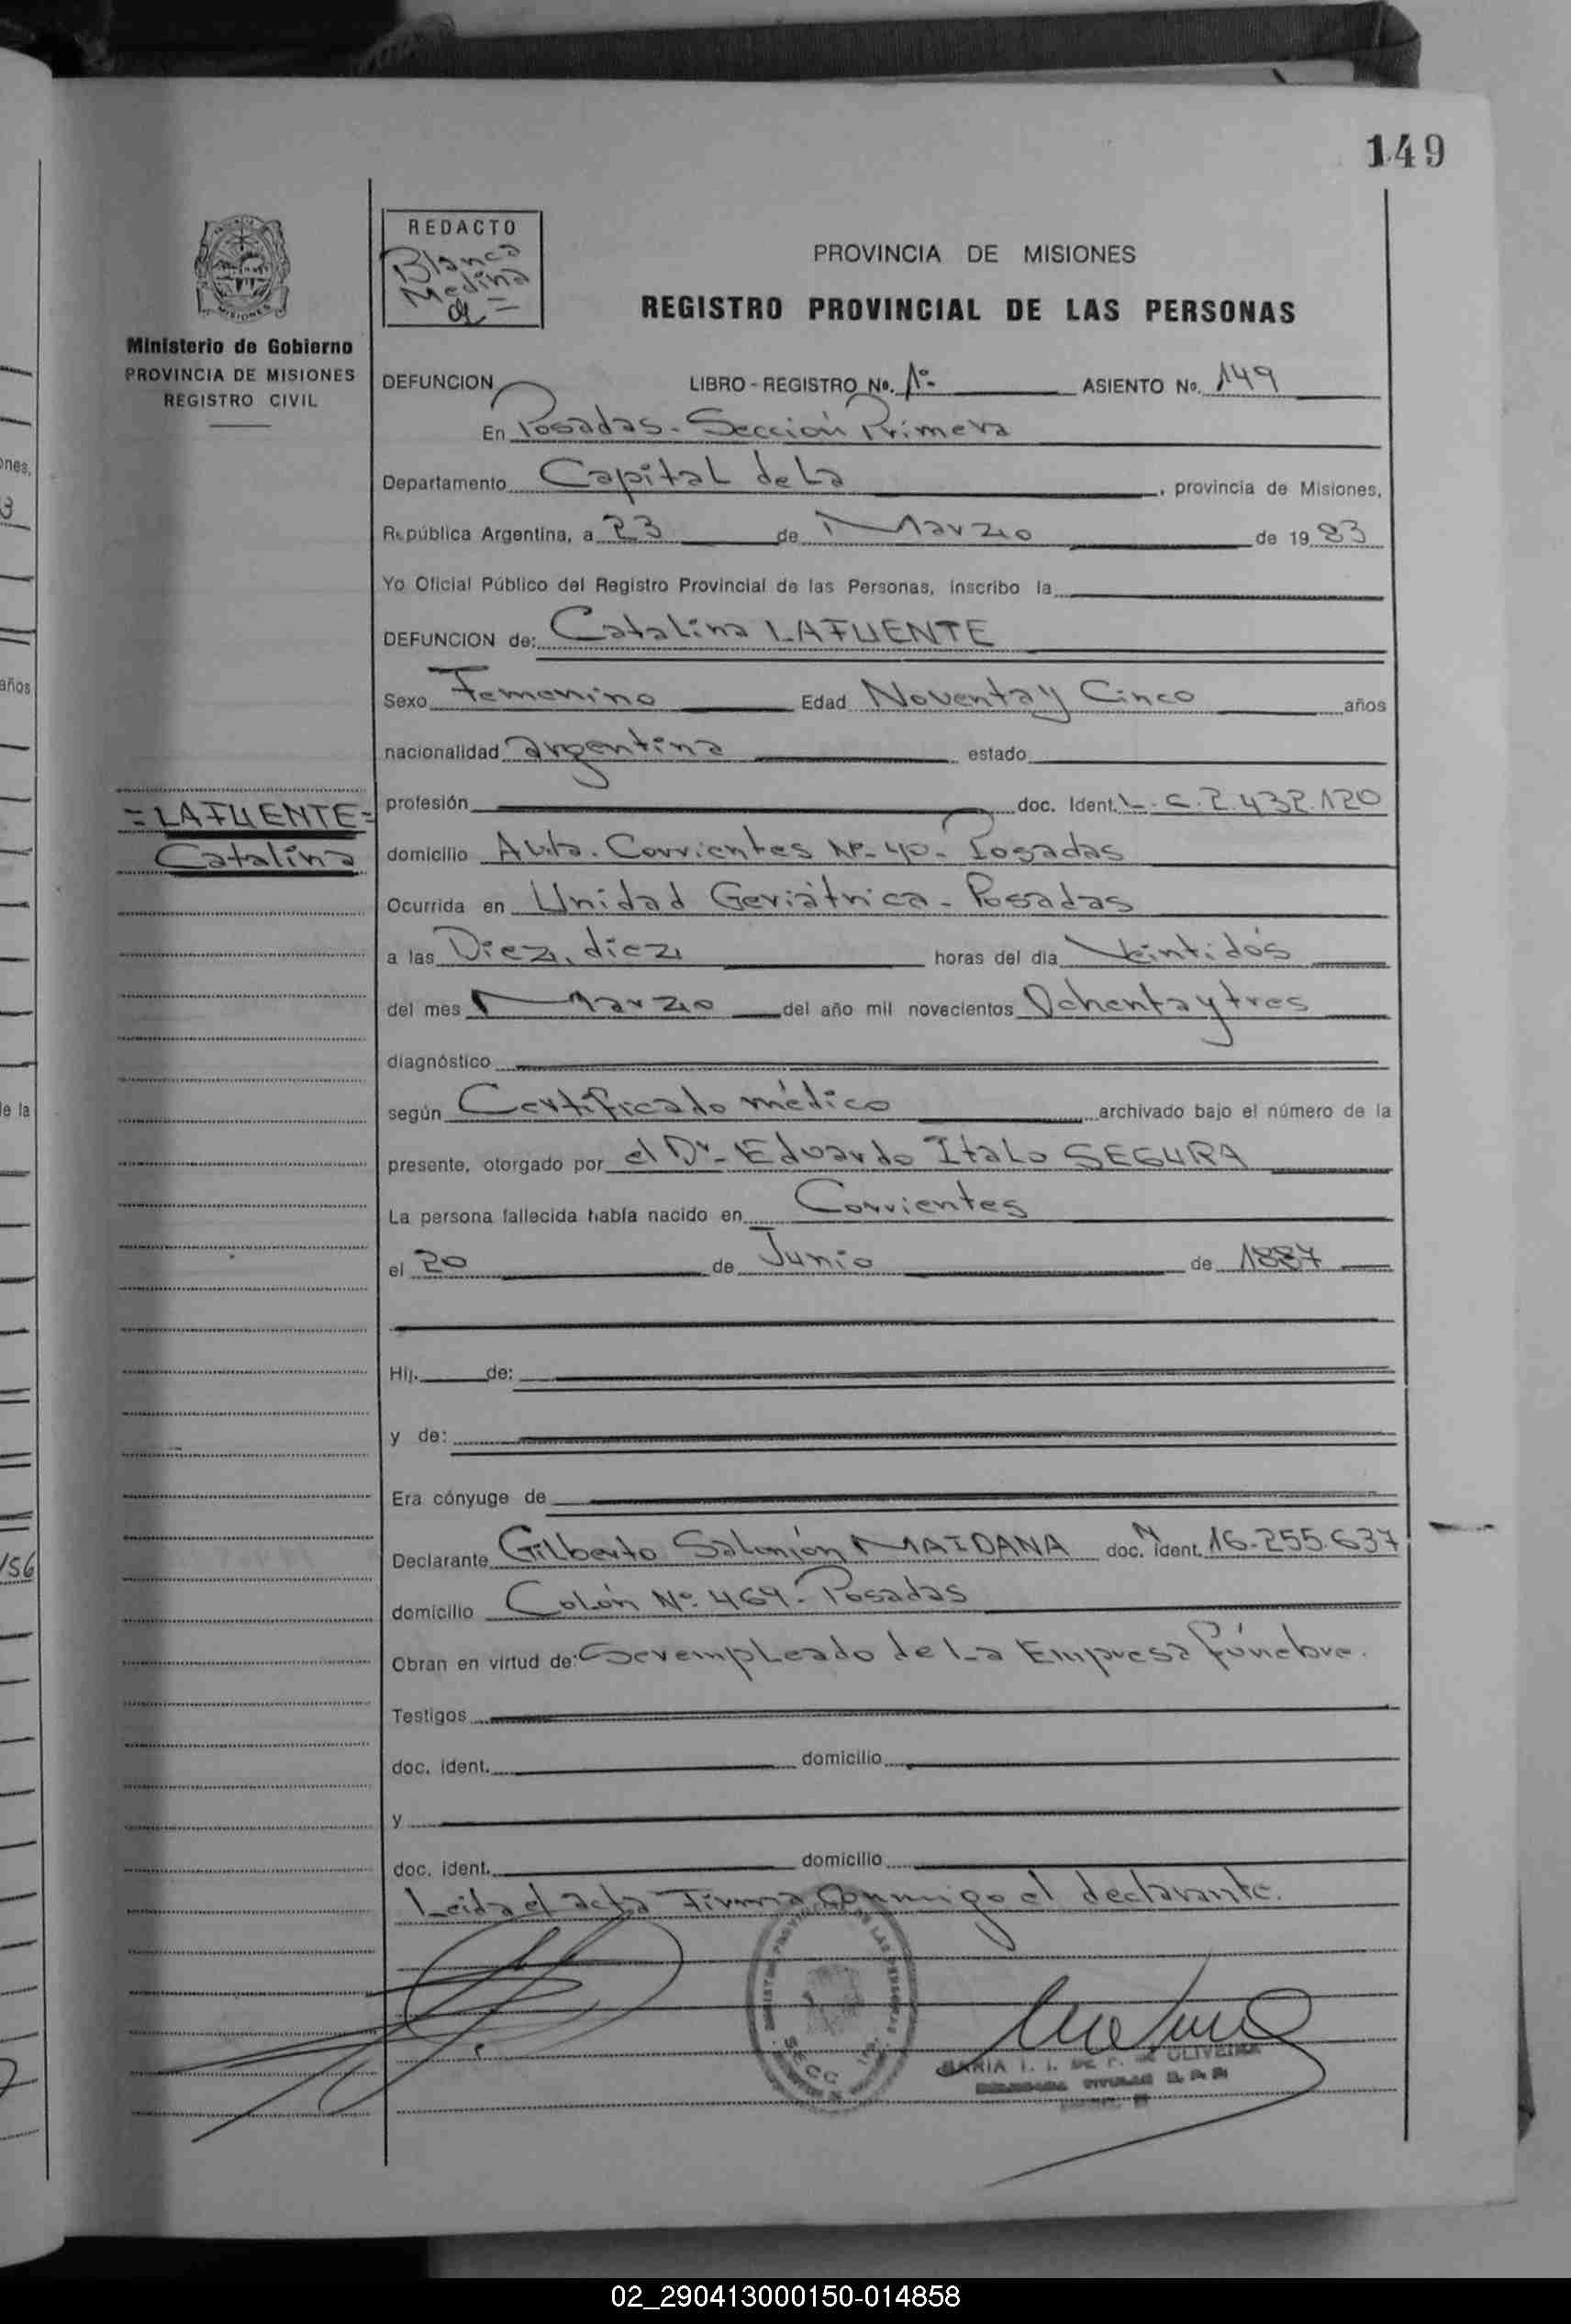 149
REDACTO
Blanca
Medina
de =
PROVINCIA DE MISIONES
REGISTRO PROVINCIAL DE LAS PERSONAS
Ministerio de Gobierno
PROVINCIA DE MISIONES
REGISTRO CIVIL
DEFUNCION LIBRO - REGISTRO No. 1º- ASIENTO No. 149
En Posadas- Sección Primera
Departamento Capital de La , provincia de Misiones,
República Argentina, a 23 de Marzo de 19 83
Yo Oficial Público del Registro Provincial de las Personas, inscribo la
DEFUNCION de: Catalina LAFUENTE
Sexo Femenino Edad Noventa y Cinco años
nacionalidad argentina estado
=LAFUENTE=
Catalina
profesión doc. Ident. L.C.2.432.120
domicilio Avda. Corrientes Nº-40- Posadas
Ocurrida en Unidad Geriátrica- Posadas
a las Diez, diez horas del día Veintidós
del mes Marzo del año mil novecientos Ochenta y tres
diagnóstico
según Certificado médico archivado bajo el número de la
presente, otorgado por el Dr- Eduardo Italo SEGURA
La persona fallecida había nacido en Corrientes
el 20 de Junio de 1887
Hij. de:
y de:
Era cónyuge de
Declarante Gilberto Salomón MAIDANA doc. N ident. 16.255.637
domicilio Colón Nº 469- Posadas
Obran en virtud de: Ser empleado de La Empresa fúnebre.
Testigos
doc. ident. domicilio
y
doc. ident. domicilio
Leida el acta Firma Conmigo el declarante.
SECC. 1ra.
MARIA I. I. DE OLIVEIRA
ones,
3
años
le la
156
02_290413000150-014858